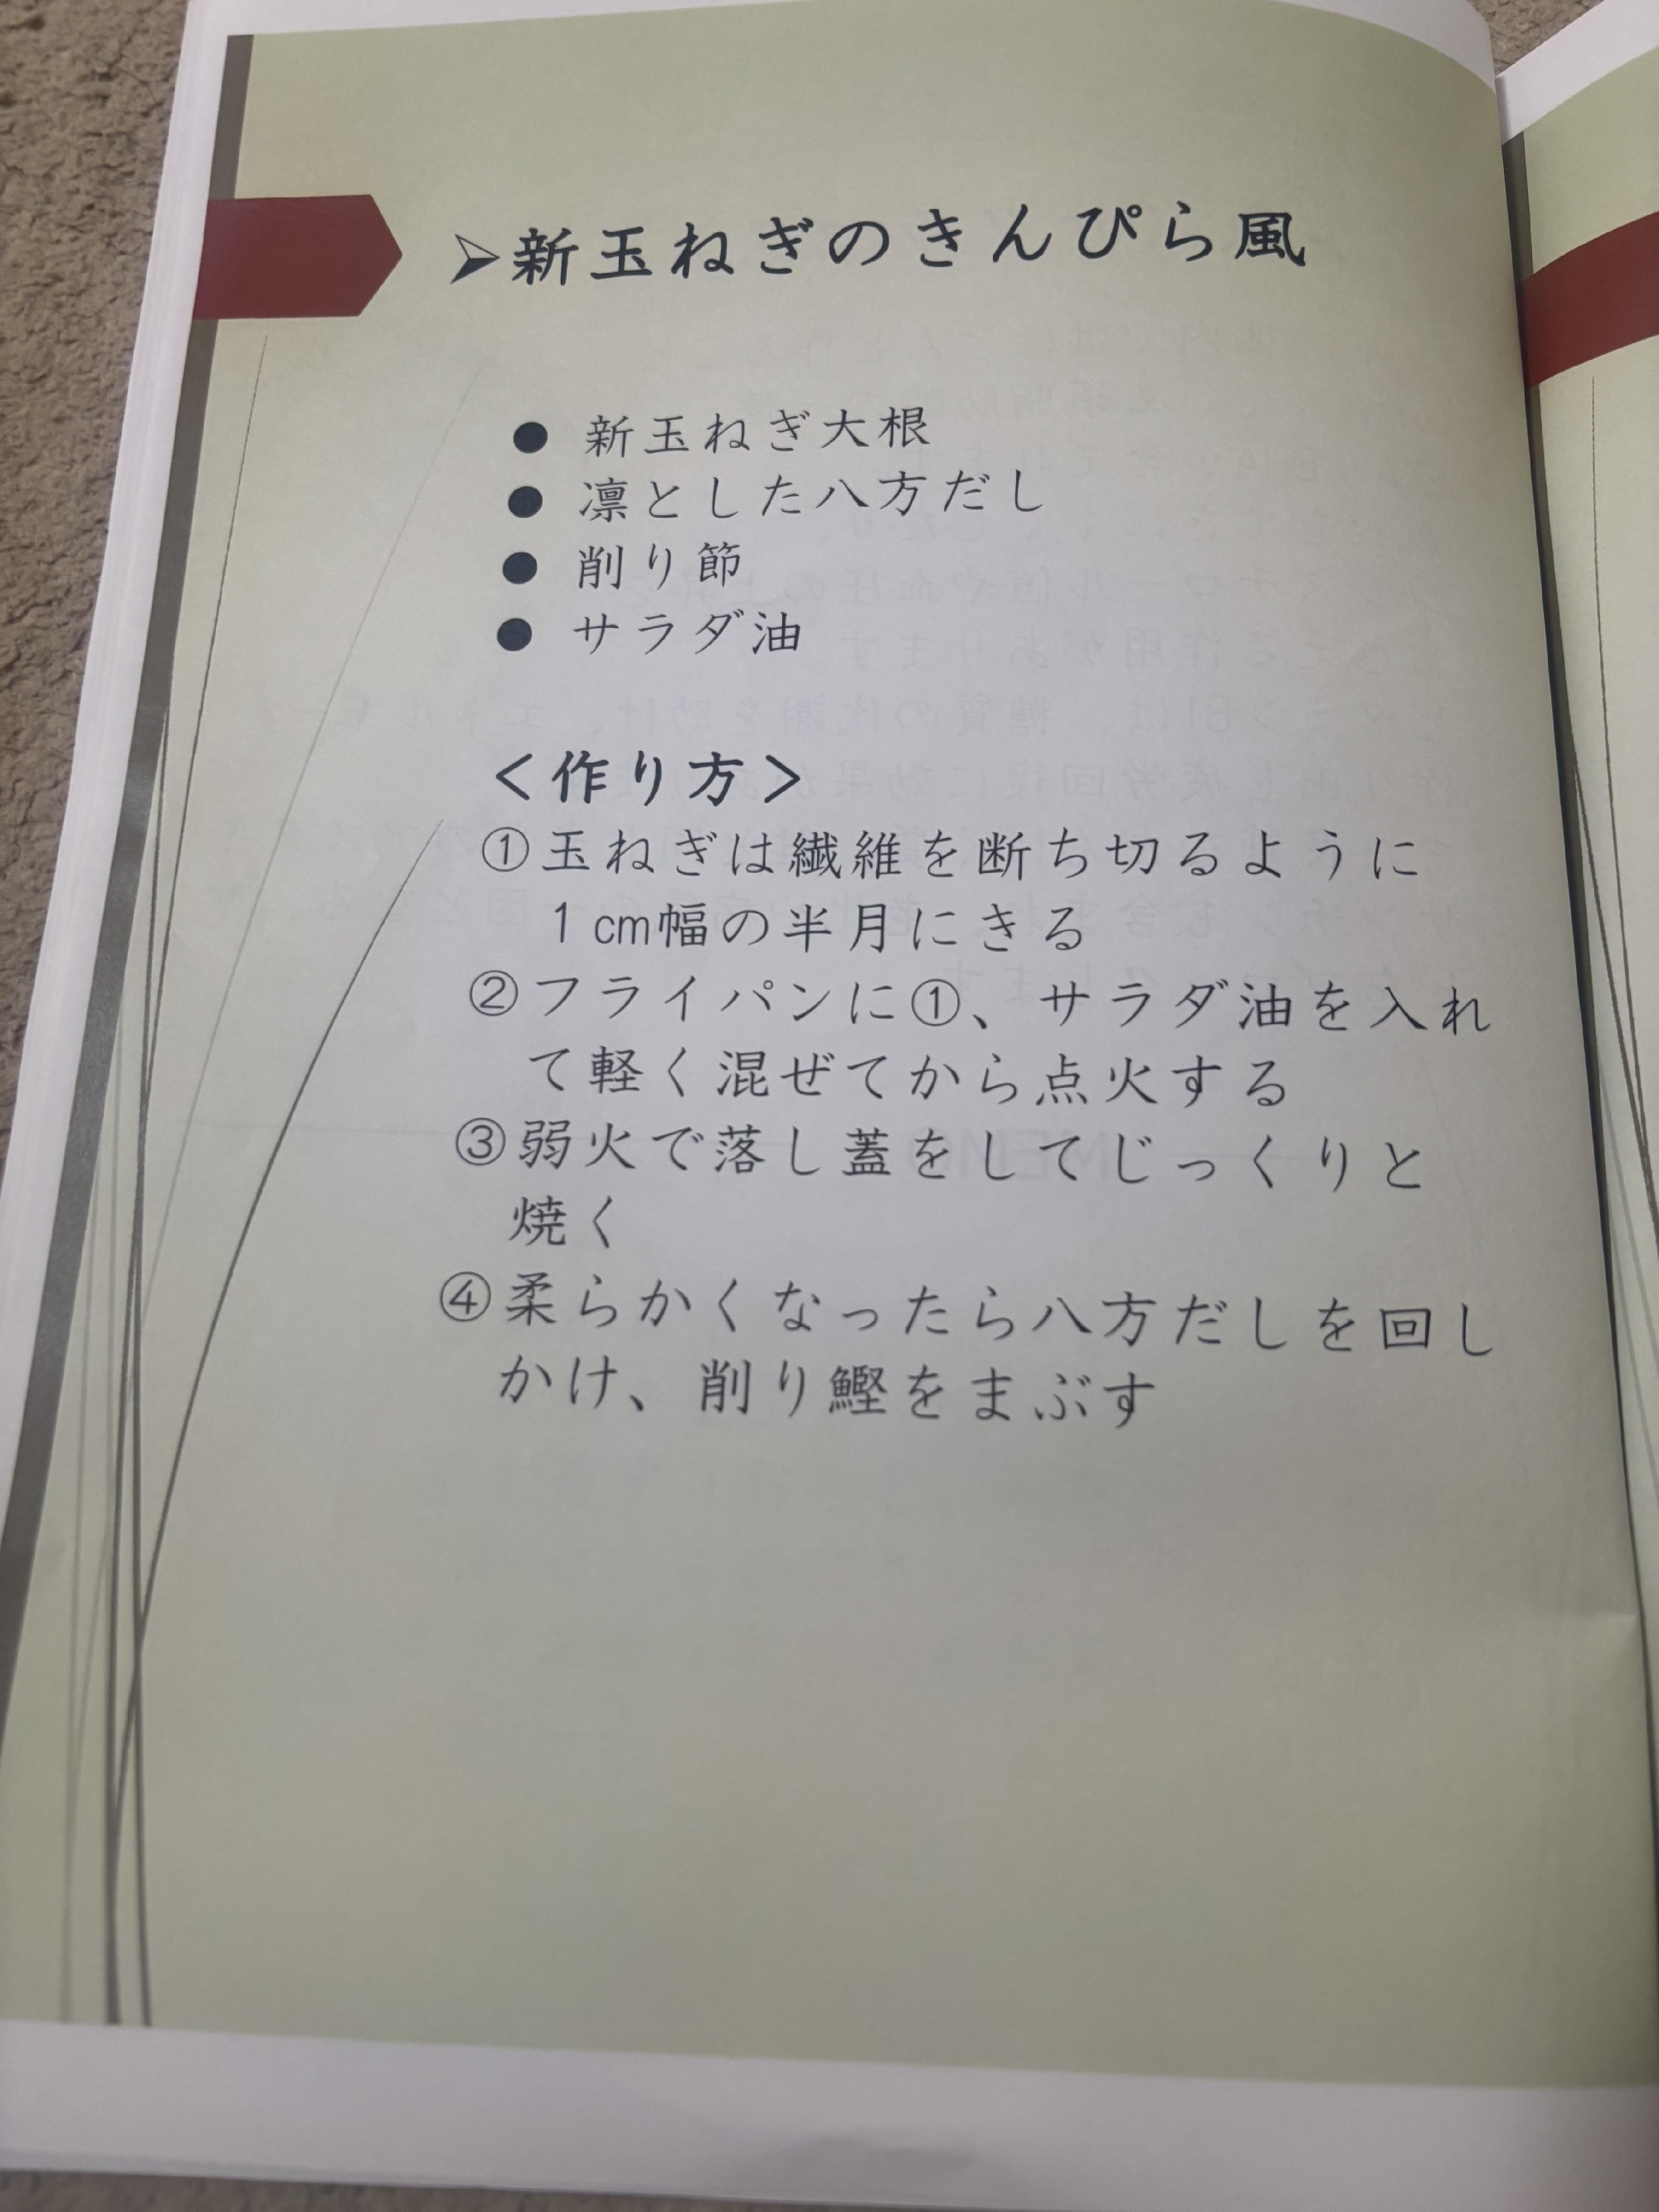 ➢新玉ねぎのきんぴら風
● 新玉ねぎ大根
● 凛とした八方だし
● 削り節
● サラダ油
＜作り方＞
①玉ねぎは繊維を断ち切るように
１㎝幅の半月にきる
②フライパンに①、サラダ油を入れ
て軽く混ぜてから点火する
③弱火で落し蓋をしてじっくりと
焼く
④柔らかくなったら八方だしを回し
かけ、削り鰹をまぶす